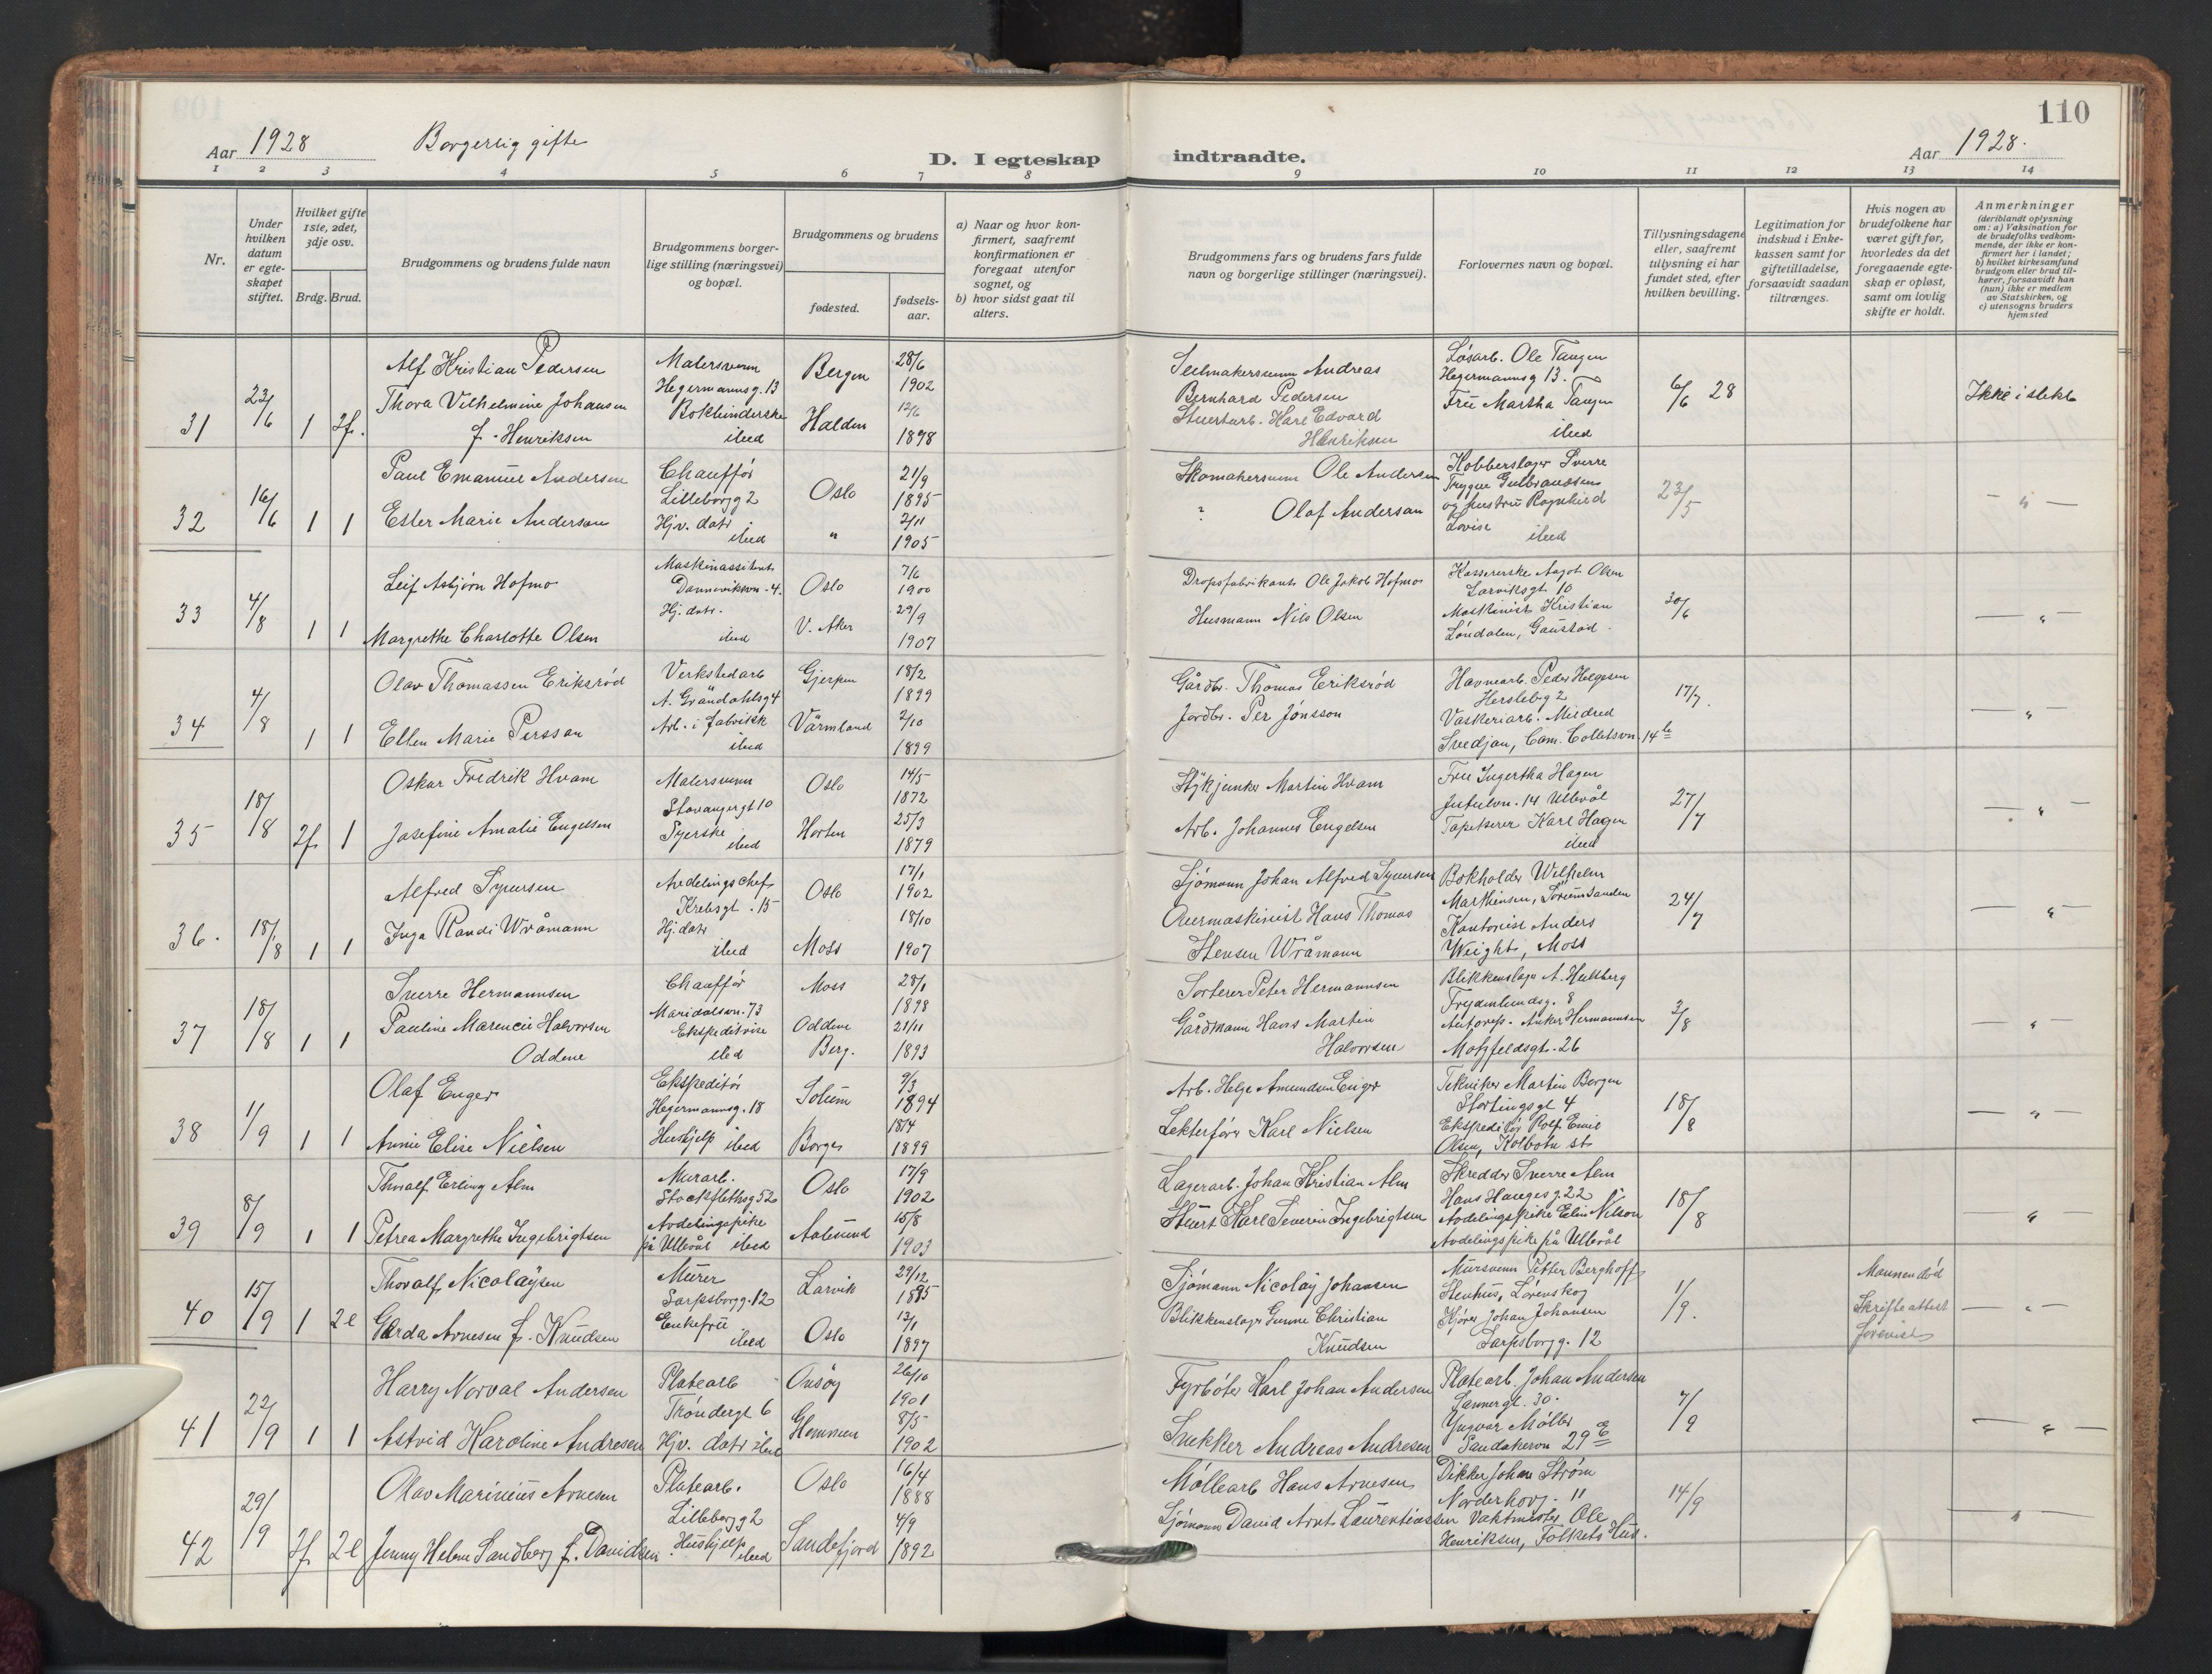 110
Aar 1928 Borgerlig gifte D. I egteskap indtraadte. Aar 1928.
1 2 3 4 5 6 7 8 9 10 11 12 13 14
Nr.
Under
hvilken
datum
er egte-
skapet
stiftet.
Hvilket gifte
1ste, 2det,
3dje osv.
Brdg. Brud.
Brudgommens og brudens fulde navn
Brudgommens borger-
lige stilling (næringsvei)
og bopæl.
Brudgommens og brudens
fødested.
fødsels-
aar.
a) Naar og hvor kon-
firmert, saafremt
konfirmationen er
foregaat utenfor
sognet, og
b) hvor sidst gaat til
alters.
Brudgommens fars og brudens fars fulde
navn og borgerlige stillinger (næringsvei).
Forlovernes navn og bopæl.
Tillysningsdagene
eller, saafremt
tillysning ei har
fundet sted, efter
hvilken bevilling.
Legitimation for
indskud i Enke-
kassen samt for
giftetilladelse,
forsaavidt saadan
tiltrænges.
Hvis nogen av
brudefolkene har
været gift før,
hvorledes da det
foregaaende egte-
skap er opløst,
samt om lovlig
skifte er holdt.
Anmerkninger
(deriblandt oplysning
om: a) Vaksination for
de brudefolks vedkom-
mende, der ikke er kon-
firmert her i landet;
b) hvilket kirkesamfund
brudgom eller brud til-
hører, forsaavidt han
(hun) ikke er medlem
av Statskirken, og
c) utensogns bruders
hjemsted
31
23/6
1 2f.
Alf Kristian Pedersen
Thora Vilhelmine Johansen
f. Henriksen
Malersvenn
Hegermannsg. 13
Bokbinderske
ibid
Bergen
Halden
28/6
1902
12/6
1898
Seilmakersvenn Andreas
Bernhard Pedersen
Stuertarb. Karl Edvard
Henriksen
Løsarb. Ole Tangen
Hegermannsg 13.
Fru Martha Tangen
ibid
6/6 28
Ikke i slekt
32
16/6
1 1
Paul Emanuel Andersen
Ester Marie Anderson
Chauffør
Lilleborgg 2
Hjv. datr
ibid
Oslo
"
21/9
1895
2/11
1905
Skomakersvenn Ole Andersen
? Olof Anderson
Kobberslager Sverre
Trygve Gulbranssen
og hustru Ragnhild
Lovise
ibid
23/5
— " —
33
4/8
1 1
Leif Asbjørn Hofmo
Margrethe Charlotte Olsen
Maskinassistent
Danneviksvn. 4.
Hj. datr.
ibid
Oslo
V. Aker
7/6
1900
29/9
1907
Dropsfabrikant Ole Jakob Hofmo
Husmann Nils Olsen
Kassererske Aagot Olsen
Larviksgt. 10
Maskinist Kristian
Løndalen, Gaustad.
30/6
— " —
34
4/8
1 1
Olav Thomassen Eriksrød
Ellen Marie Persson
Verkstedarb
A. Grøndahlsg 4
Arb. i fabrikk
ibid
Gjerpen
Värmland
18/2
1899
2/10
1899
Gårdbr. Thomas Eriksrød
Jordbr. Per Jonsson
Havnearb. Peder Helgesen
Herslebg 2
Vaskeriarb. Mildred
Svedjan, Cam. Colletsvn. 14
17/7.
— " —
35
18/8
2f 1
Oskar Fredrik Hvam
Josefine Amalie Engelsen
Malersvenn
Stavangergt 10
Syerske
ibid
Oslo
Horten
14/5
1872
25/3
1879
Stykjunker Martin Hvam
Arb. Johannes Engelsen
Fru Ingertha Hagen
14 Ullevål
Tapetserer Karl Hagen
ibid
27/7
— " —
36.
18/8
1 1
Alfred Syversen
Inga Randi Wråmann
Avdelingschef
Krebsgt. 15
Hj. datr
ibid
Oslo
Moss
17/1
1902
18/10
1907
Sjømann Johan Alfred Syversen
Overmaskinist Hans Thomas
Stensen Wråmann
Bokholder Wilhelm
Martinsen, Sørumsanden
Kontorist Anders
Weight, Moss
24/7
— " —
37
18/8
1 1
Sverre Hermannsen
Pauline Marencie Halvorsen
Oddene
Chauffør
Maridalsvn. 73
Ekspeditrise
ibid
Moss
Oddene
Berg.
28/1
1898
21/11
1893
Sorterer Peter Hermannsen
Gårdmann Hans Martin
Halvorsen
Blikkenslager A. Hultberg
Frydenlundsg. 8
Autorep. Anker Hermannsen
Motzfeldsgt. 26
3/8
— " —
38
1/9
1 1
Olaf Enger
Annie Elise Nielsen
Ekspeditør
Hegermannsg. 18
Hushjelp ibid
Solum
Borge
9/3
1894
18/4
1899
Arb. Helge Amundsen Enger
Lekterfører Karl Nielsen
Tekniker Martin Bergen
Stortingsgt 4
Ekspeditør Rolf Emil
Olsen, Kolbotn st
18/8
— " —
39
8/9
1 1
Thoralf Erling Alm
Petrea Margrethe Ingebrigtsen
Murarb.
Stockflethsg 52
Avdelingspike
på Ullevål ibid
Oslo
Aalesund
17/9
1902
15/8
1903
Lagerarb. Johan Kristian Alm
Stuert Karl Severin Ingebrigtsen
Skredder Sverre Alm
Hans Hauges g. 22
Avdelingspike Elin Nilson
Avdelingspike på Ullevål
18/8
— " —
40
15/9
1 2e
Thoralf Nicolaysen
Gerda Arnesen f. Knudsen
Murer
Sarpsborgg. 12
Enkefru
ibid
Larvik
Oslo
29/12
1895
13/1
1897
Sjømann Nicolay Johansen
Blikkenslager Gunne Christian
Knudsen
Mursvenn Petter Berghoff
Stenhus, Lørenskog
Kjører Johan Johansen
Sarpsborgg. 12
1/9.
Mannen død
Skifteattest
forevist
— " —
41
22/9
1 1
Harry Norval Andersen
Astvid Karoline Andresen
Platearb
Trøndergt 6
Hjv. datr ibid
Onsøy
Glemmen
26/10
1901
8/5
1902
Fyrbøter Karl Johan Andersen
Snekker Andreas Andresen
Platearb. Johan Andersen
Sannergt. 30.
Yngvar Møller
Sandakervn 29 E
7/9
— " —
42
29/9
2f 2e
Olav Marinius Arnesen
Jenny Helene Sandberg f. Davidsen
Platearb.
Lilleborgg 2
Hushjelp
ibid
Oslo
Sandefjord
16/4
1888
4/9
1892
Møllearb Hans Arnesen
Sjømann David Arnt Laurentiussen
Dikker Johan Strøm
Norderhovg. 11
Vaktmester Ole
Henriksen, Folkets Hus.
14/9
— " —